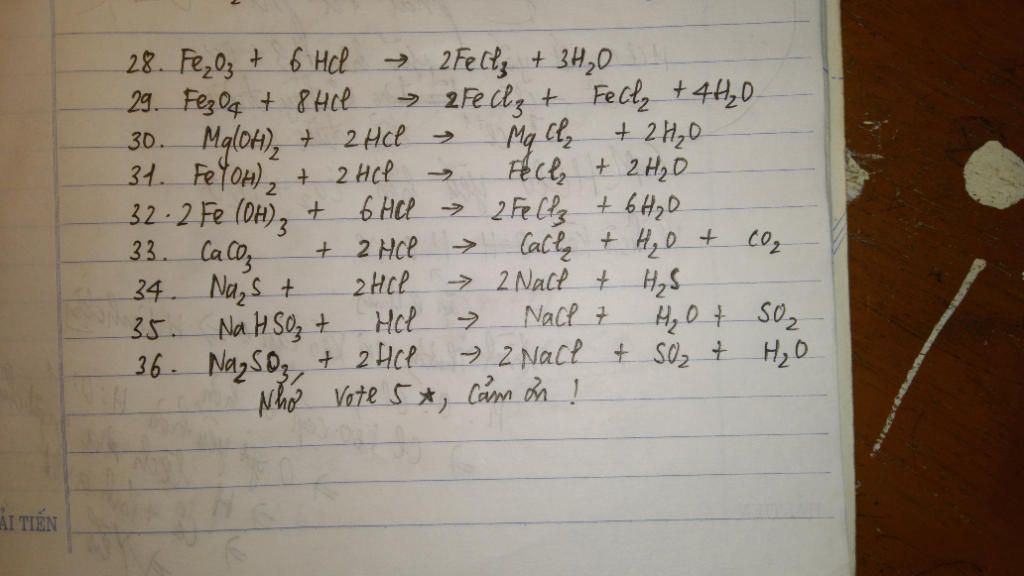 28. Fe₂O₃ + 6 HCl → 2FeCl₃ + 3H₂O
29. Fe₃O₄ + 8HCl → 2FeCl₃ + FeCl₂ + 4H₂O
30. Mg(OH)₂ + 2HCl → MgCl₂ + 2H₂O
31. Fe(OH)₂ + 2HCl → FeCl₂ + 2H₂O
32. 2Fe(OH)₃ + 6HCl → 2FeCl₃ + 6H₂O
33. CaCO₃ + 2HCl → CaCl₂ + H₂O + CO₂
34. Na₂S + 2HCl → 2NaCl + H₂S
35. NaHSO₃ + HCl → NaCl + H₂O + SO₂
36. Na₂SO₃ + 2HCl → 2NaCl + SO₂ + H₂O
Nhớ Vote 5 ★, Cảm ơn !
ẢI TIẾN